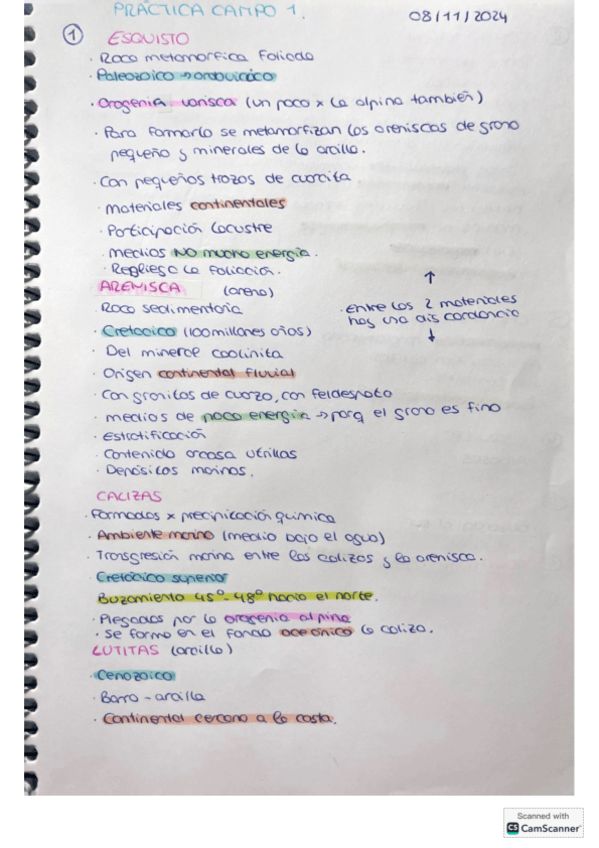 PRÁCTICA CAMPO 1.
08/11/2024
1
ESQUISTO
· Roca metamórfica foliada
· Paleozoico → ordovícico
· Orogenia varisca (un poco x la alpina también)
· Para formarlo se metamorfizan las areniscas de grano
pequeño y minerales de la arcilla.
· Con pequeños trozos de cuarcita
· Materiales continentales
· Participación lacustre
· medios NO mucha energía.
· Repliega la foliación.
ARENISCA (arena)
· Roca sedimentaria
· Cretácico (100 millones años)
· Del mineral caolinita
· Origen continental fluvial
· Con granitos de cuarzo, con feldespato
· medios de poca energía → porq el grano es fino
· Estratificación
· Contenido arcosa utrillas
· Depósitos marinos.
↑
· entre los 2 materiales
hay una discordancia
↓
CALIZAS
· Formadas x precipitación química
· Ambiente marino (medio bajo el agua)
· Transgresión marina entre las calizas y la arenisca.
· Cretácico superior
Buzamiento 45º-48º hacia el norte.
· Plegadas por la orogenia alpina
· Se formó en el fondo oceánico la caliza.
LUTITAS (arcilla)
· Cenozoico
· Barro - arcilla
· Continental cercano a la costa.
Scanned with
CS CamScanner